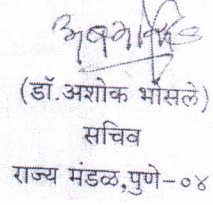 (डॉ.अशोक भोसले)
सचिव
राज्य मंडळ,पुणे-०४